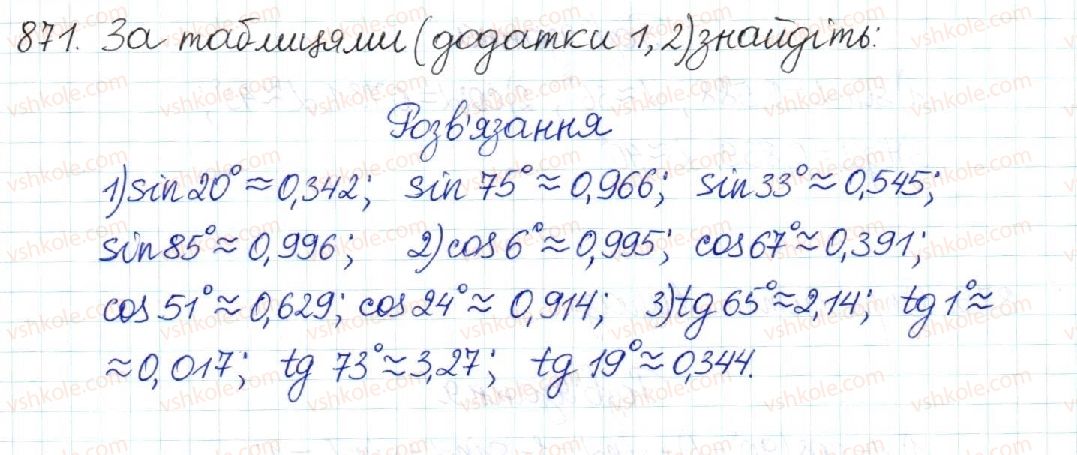 871. За таблицями (додатки 1, 2) знайдіть:
Розв'язання
1) sin 20° ≈ 0,342; sin 75° ≈ 0,966; sin 33° ≈ 0,545;
sin 85° ≈ 0,996; 2) cos 6° ≈ 0,995; cos 67° ≈ 0,391;
cos 51° ≈ 0,629; cos 24° ≈ 0,914; 3) tg 65° ≈ 2,14; tg 1° ≈
≈ 0,017; tg 73° ≈ 3,27; tg 19° ≈ 0,344.